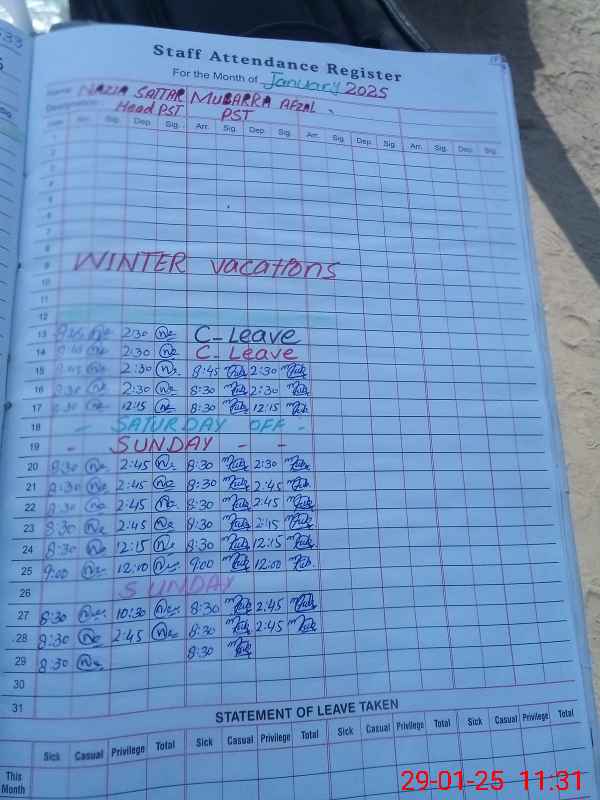 Staff Attendance Register
For the Month of January 2025
Name NAZIA SATTAR MUBARRA AFZAL
Designation Head PST PST
Arr. Sig. Dep. Sig. Arr. Sig. Dep. Sig. Arr. Sig. Dep. Sig. Arr. Sig. Dep. Sig.
1
2
3
4
5
6
7
8
9 WINTER vacations
10
11
12
13 2:30 C- Leave
14 2:30 C- Leave
15 2:30 8:45 2:30
16 8:30 2:30 8:30 2:30
17 8:30 12:15 8:30 12:15
18 - SATURDAY OFF -
19 - SUNDAY - -
20 8:30 2:45 8:30 2:30
21 8:30 2:45 8:30 2:45
22 8:30 2:45 8:30 2:45
23 8:30 2:45 8:30 2:15
24 8:30 12:15 8:30 12:15
25 9:00 12:10 9:00 12:00
26 SUNDAY
27 8:30 10:30 8:30 2:45
28 8:30 2:45 8:30 2:45
29 8:30 8:30
30
31
STATEMENT OF LEAVE TAKEN
Sick Casual Privilege Total Sick Casual Privilege Total Sick Casual Privilege Total Sick Casual Privilege Total
This Month
29-01-25 11:31